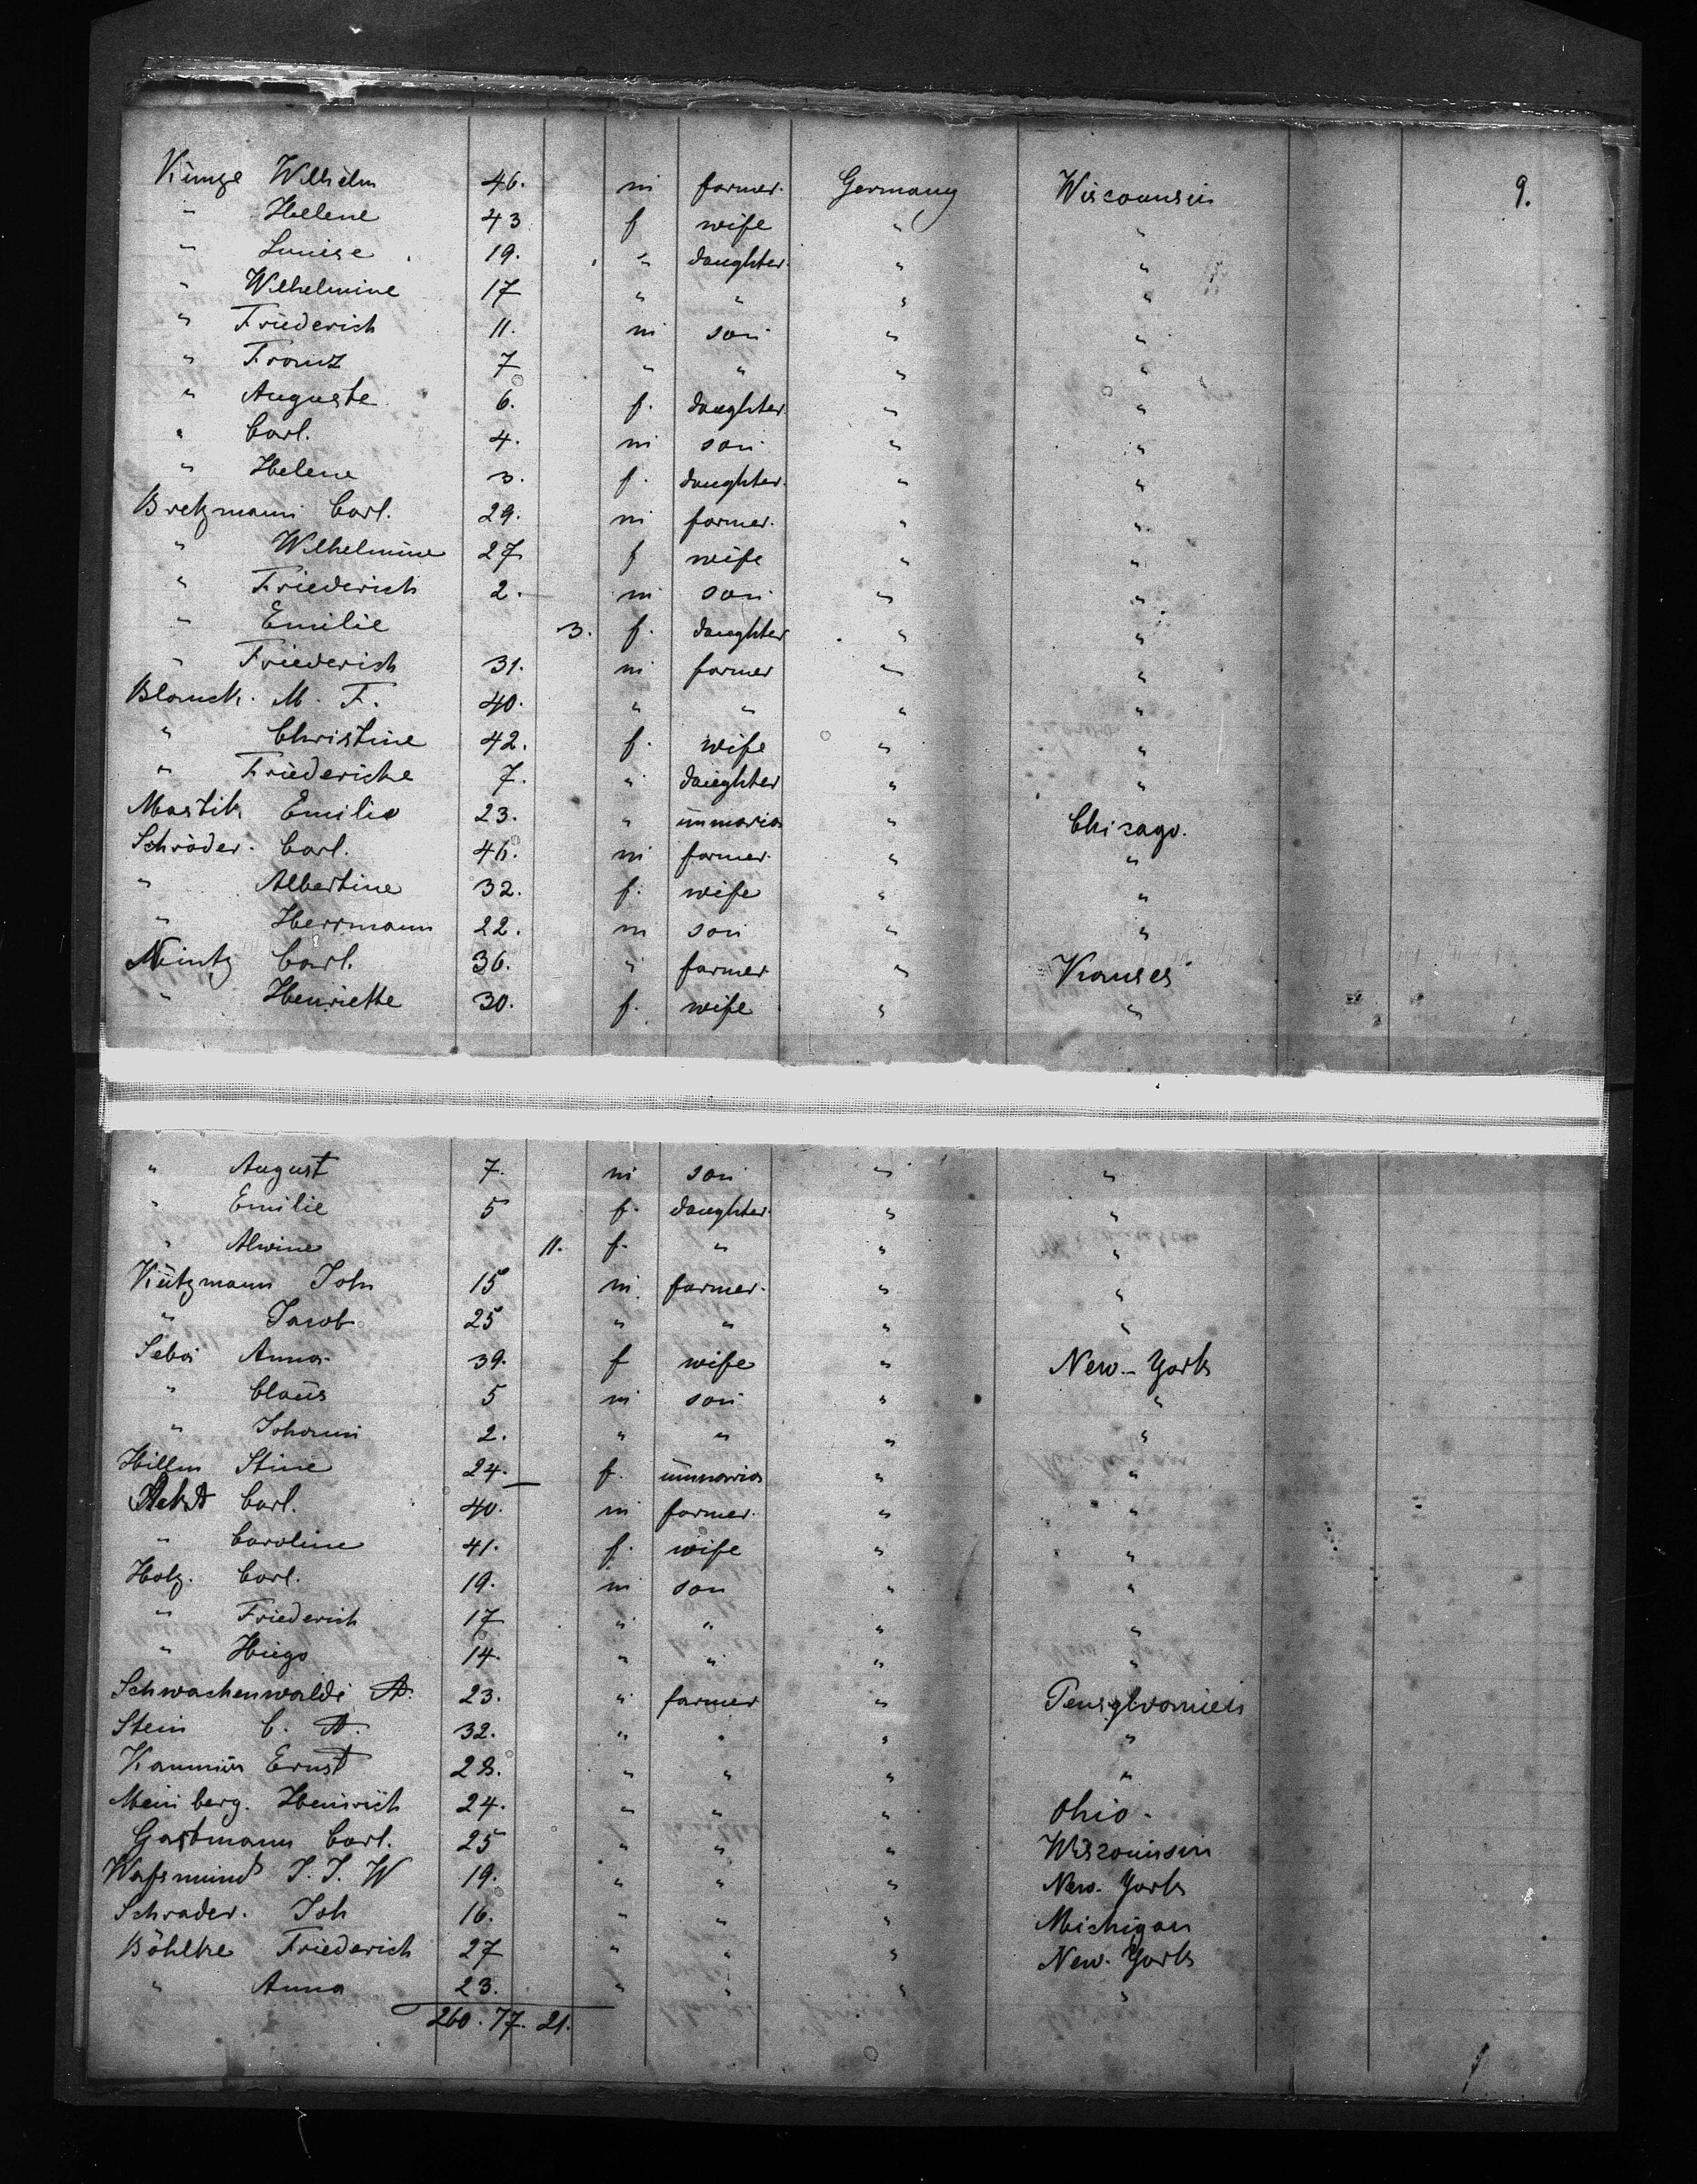 9.
Künge Wilhelm 46. m farmer. Germany Wisconnsin
" Helene 43 f wife " "
" Luise 19. " daughter. " "
" Wilhelmine 17 " " " "
" Friederich 11. m son " "
" Franz 7 " " " "
" Auguste 6. f. daughter. " "
" Carl. 4. m son " "
" Helene 3. f. daughter. " "
Bretzmann Carl. 29. m farmer. " "
" Wilhelmine 27 f wife " "
" Friederich 2. m son " "
" Emilie 3. f. daughter " "
" Friederich 31. m farmer " "
Blanck. M. F. 40. " " " "
" Christine 42. f. wife " "
" Friedericke 7. " daughter " "
Mastik Emilie 23. " " Chicago.
Schröder. Carl. 46. m farmer. " "
" Albertine 32. f. wife " "
" Herrmann 22. m son " "
Mintz Carl. 36. " farmer " Kanses
" Henriette 30. f. wife " "
" August 7. m son " "
" Emilie 5 f. daughter. " "
" Alwine 11. f. " " "
Kützmann Joh 15 m. farmer. " "
" Jacob 25 " " " "
Anna 39. f wife " New-York
" Claus 5 m son " "
" Johann 2. " " " "
Stine 24. f. " "
Carl. 40. m farmer. " "
" Caroline 41. f. wife " "
Holz. Carl. 19. m son " "
" Friederich 17 " " " "
" Hugo 14. " " " "
Schwachenwaldt A. 23. " farmer " Pensylvanien
Stein C. A. 32. " " " "
Ernst 28. " " " "
Meinberg. Heinrich 24. " " " Ohio.
Gastmann Carl. 25 " " " Wisconinsin
Wassmund J. J. W 19. " " " New-York
Schrader. Joh 16. " " " Michigan
Böhlke Friederich 27 " " " New-York
" Anna 23. " " " "
260. 77. 21.